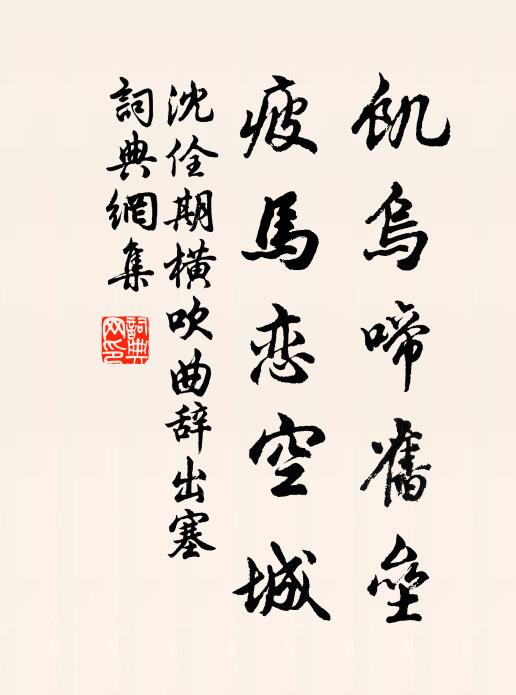 飢烏啼舊壘
疲馬恋空城
沈佺期橫吹曲辞出塞
詞典網集
詞典
网印